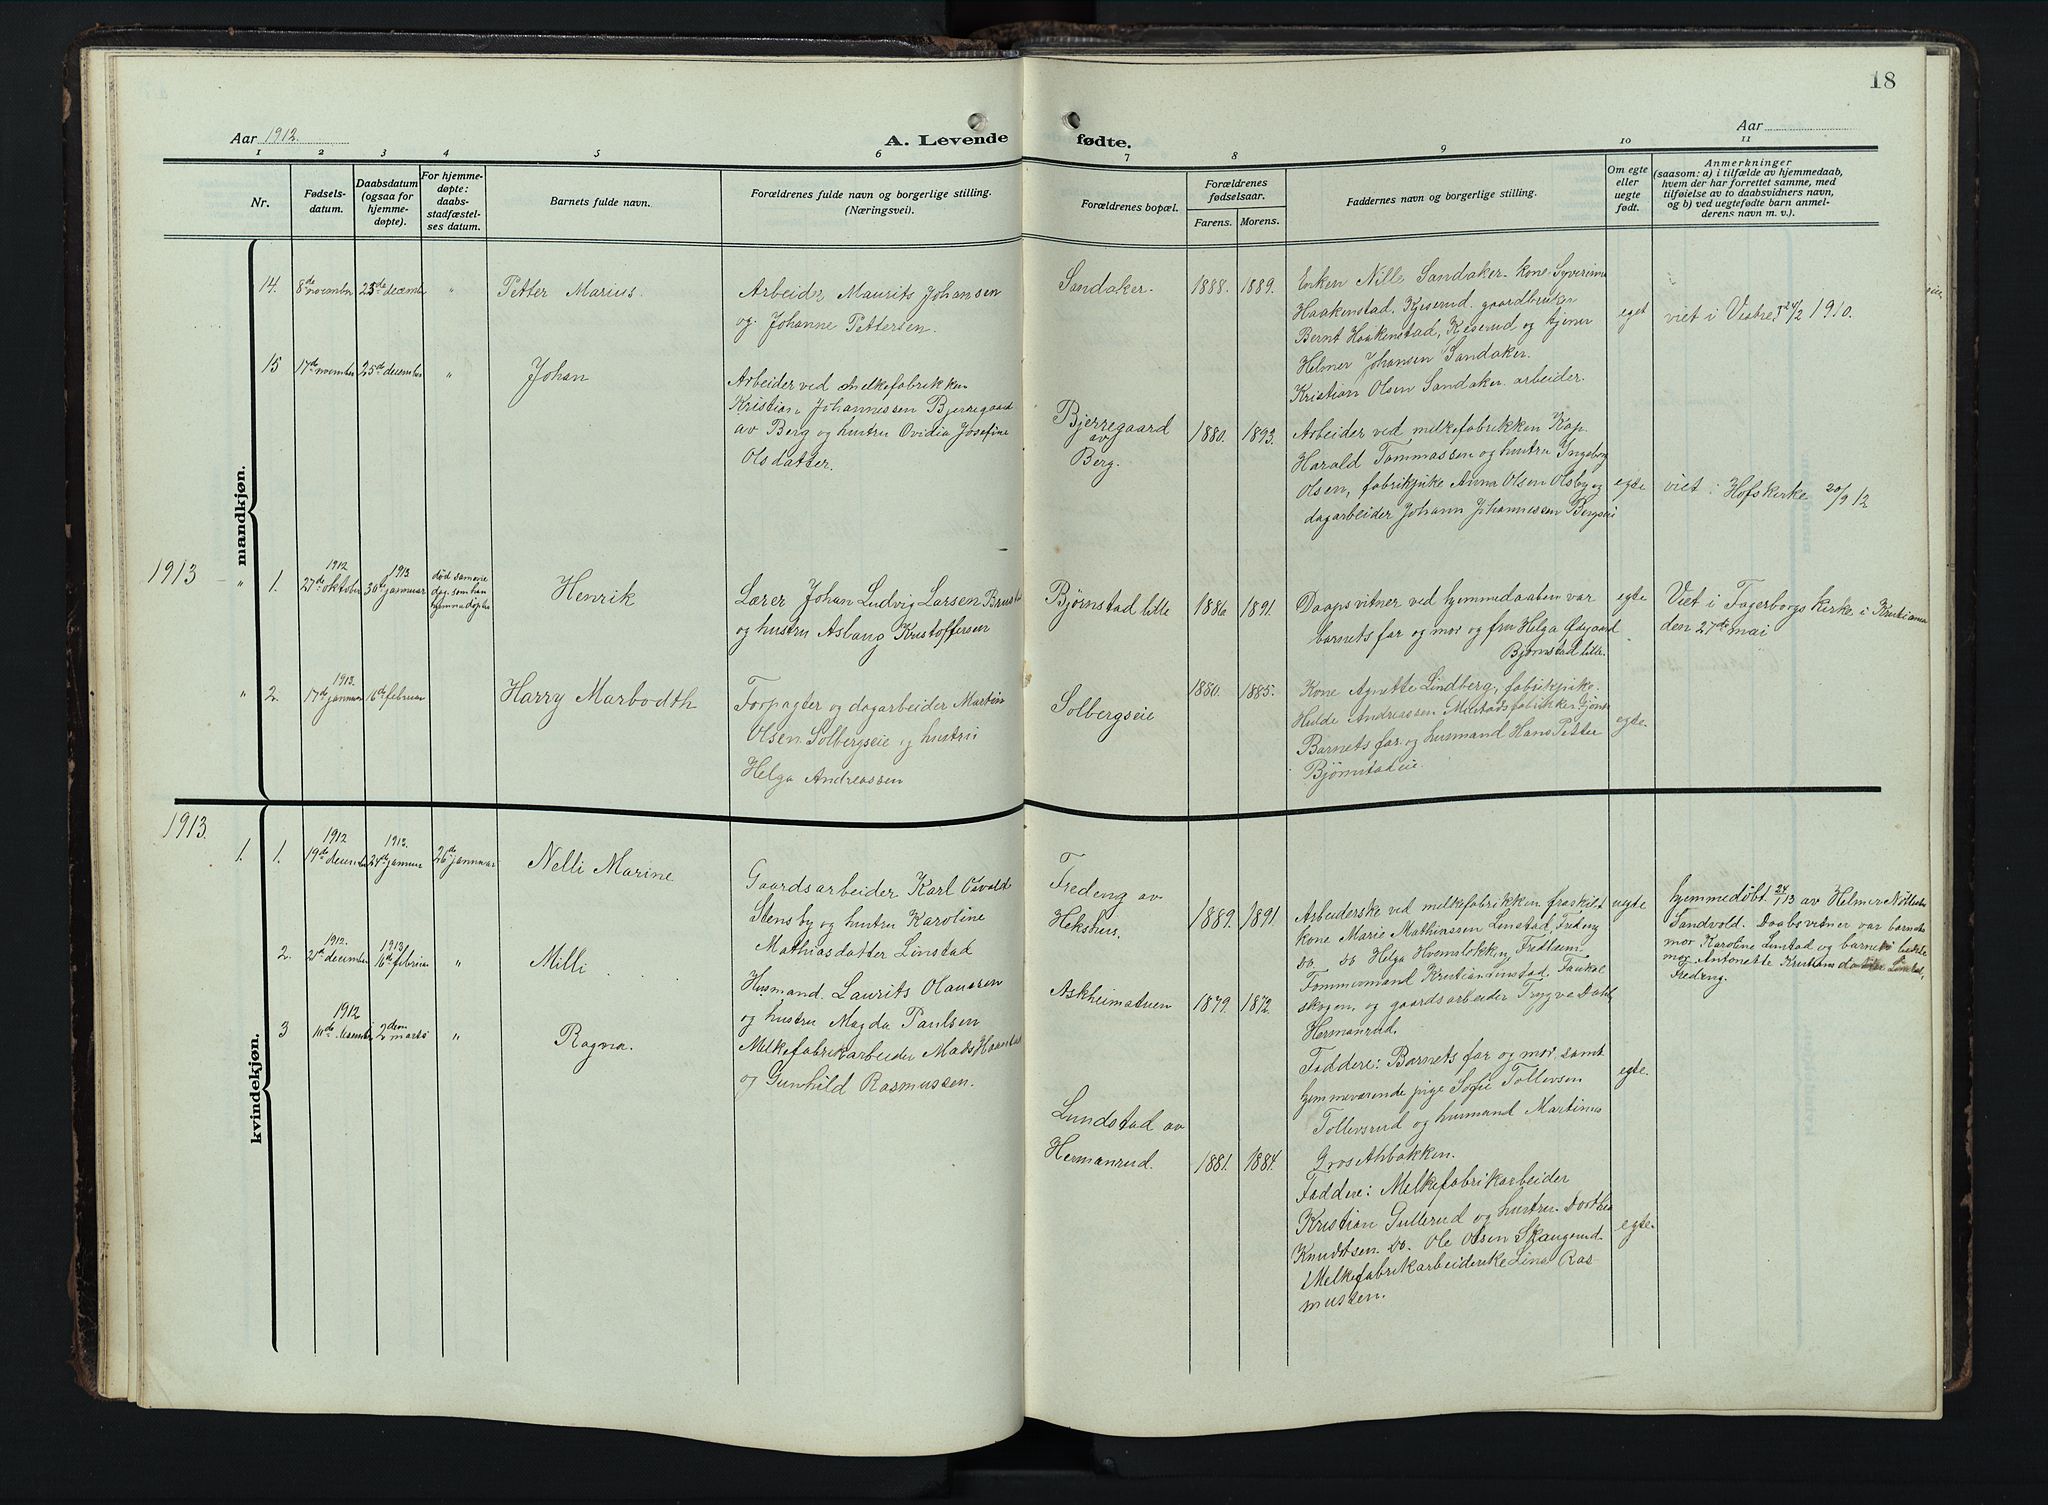 18
Aar 1912.
A. Levende
fødte.
Aar
1
2
3
4
5
6
7
8
9
10
11
Nr.
Fødsels-
datum.
Daabsdatum
(ogsaa for
hjemme-
døpte).
For hjemme-
døpte:
daabs-
stadfæstel-
ses datum.
Barnets fulde navn.
Forældrenes fulde navn og borgerlige stilling.
(Næringsvei).
Forældrenes bopæl.
Forældrenes
fødselsaar.
Farens.
Morens.
Faddernes navn og borgerlige stilling.
Om egte
eller
uegte
født.
Anmerkninger
(saasom: a) i tilfælde av hjemmedaab,
hvem der har forrettet samme, med
tilføielse av to daabsvidners navn,
og b) ved uegtefødte barn anmel-
derens navn m. v.).
mandkjøn.
14.
8de november
25de decembr
"
Petter Marius.
Arbeider Maurits Johansen
og Johanne Pettersen.
Sandaker.
1888.
1889.
Enken Nille Sandaker. kone
Haakenstad. Kjeserud. gaardbruker
Bernt Haakenstad, Kjeserud og tjener
Helmer Johansen Sandaker.
Kristian Olsen Sandaker. arbeider.
eget
viet i 24/2 1910.
15
17de november
25de december
"
Johan
Arbeider ved melkefabrikken
Kristian Johannessen Bjerregaard
av Berg og hustru Ovidia Josefine
Olsdatter.
Bjerregaard
av
Berg.
1880.
1893.
Arbeider ved melkefabrikken Kap.
Harald Tommassen og hustru Ingeborg
Olsen, fabrikpike Anna Olsen Olsby og
dagarbeider Johann Johannessen Bergseie
egte
viet i Hofskirke 20/9 12
1913
"
1.
1912
27de oktober
1913
30te januar
død samme
dag som han
hjemmedøptes
Henrik
Lærer Johan Ludvig Larsen
og hustru Aslaug Kristoffersen
Bjørnstad lille
1886
1891.
Daapsvitner ved hjemmedaaben var
barnets far og mor og fru Helga Ødegaard
Bjørnstad lille.
egte
Viet i Fagerborgs kirke i Kristiania
den 27de mai
"
2.
1913.
17de januar
16de februar
Harry Marbodth
Forpagter og dagarbeider Martin
Olsen Solbergseie og hustru
Helga Andreassen
Solbergseie
1880.
1885.
Kone Agnette Lindberg, fabrikpike
Hulde Andreassen Mustads fabrikker Gjøvik
Barnets far og husmand Hans Petter
Bjørnstadeie.
egte.
1913.
kvindekjøn.
1.
1.
1912
19de december
1913.
24de januar
26de januar
Nelli Marine
Gaardsarbeider Karl Osvald
Stensby og hustru Karoline
Mathiasdatter Linstad
Fredeng av
Hekshus.
1889.
1891.
Arbeiderske ved melkefabrikken fraskilt
kone Marie Mathiassen Linstad, Fredeng
Do. Do Helga
Tømmermand Kristian Linstad,
skogen, og gaardsarbeider Trygve Dahl,
Hermanrud.
egte
hjemmedøbt 24/1 13 av Helmer
Sandvold. Daabsvitner var barnets
mor Karoline Linstad og barnets
mor Antonette Kristiansdatter
Fredeng.
2.
1912.
21de december
1913
16de februar
"
Milli
Husmand. Laurits Olaussen
og hustru Magda Paulsen
Askheimstuen
1879.
1872.
Faddere: Barnets far og mor, samt
hjemmeværende pige Sofie Tollevsen
Tollevsrud og husmand Martinus
Grosethbakken.
egte.
3
1912
14de
2den marts
"
Ragna.
Melkefabrikarbeider Mads
og Gunhild Rasmussen.
Lundstad av
Hermanrud.
1881.
1884.
Faddere: Melkefabrikarbeider
Kristian Gullerud og hustru Dorthea
Knudtsen. Do. Ole Olsen Skaugerud.
Melkefabrikarbeiderske Lina Ras-
mussen.
egte.